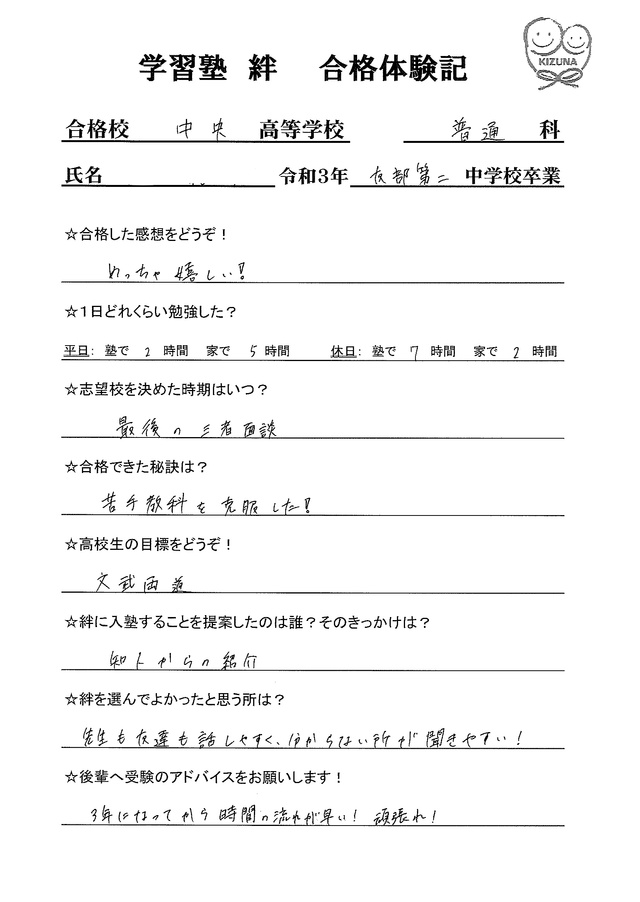 学習塾 絆 合格体験記
KIZUNA
合格校 中央 高等学校 普通 科
氏名 令和3年 友部第二 中学校卒業
☆合格した感想をどうぞ！
めっちゃ嬉しい!
☆1日どれくらい勉強した？
平日: 塾で 2 時間 家で 5 時間 休日: 塾で 7 時間 家で 2 時間
☆志望校を決めた時期はいつ？
最後の三者面談
☆合格できた秘訣は？
苦手教科を克服した!
☆高校生の目標をどうぞ！
文武両道
☆絆に入塾することを提案したのは誰？そのきっかけは？
知人からの紹介
☆絆を選んでよかったと思う所は？
先生も友達も話しやすく、分からない所が聞きやすい!
☆後輩へ受験のアドバイスをお願いします！
3年になってから時間の流れが早い! 頑張れ!